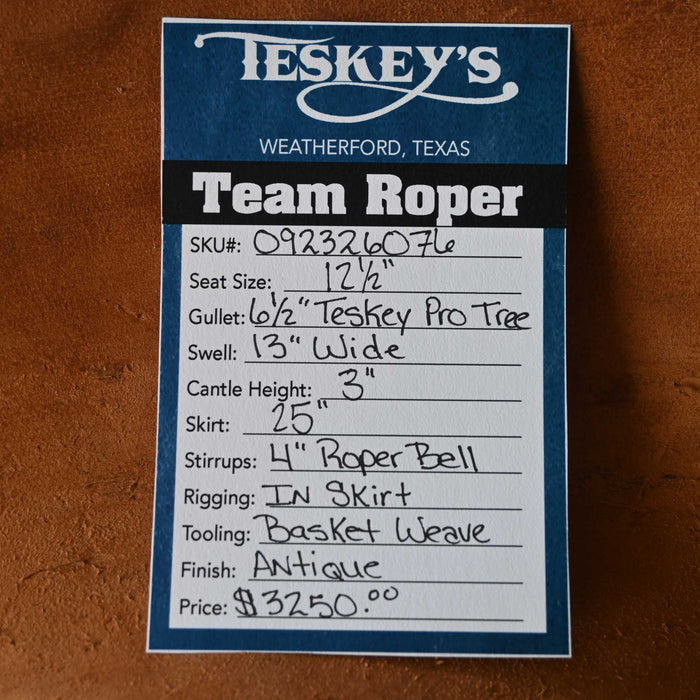 TESKEY'S
WEATHERFORD, TEXAS
Team Roper
SKU#: 092326076
Seat Size: 12½"
Gullet: 6½" Teskey Pro Tree
Swell: 13" Wide
Cantle Height: 3"
Skirt: 25"
Stirrups: 4" Roper Bell
Rigging: IN Skirt
Tooling: Basket Weave
Finish: Antique
Price: $3250.00